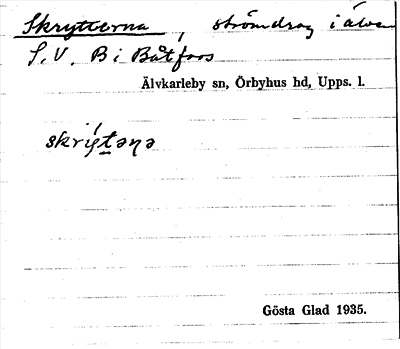 Skrytterna, strömdrag i älven
S.V. B i Båtfors
Älvkarleby sn, Örbyhus hd, Upps. l.
Gösta Glad 1935.